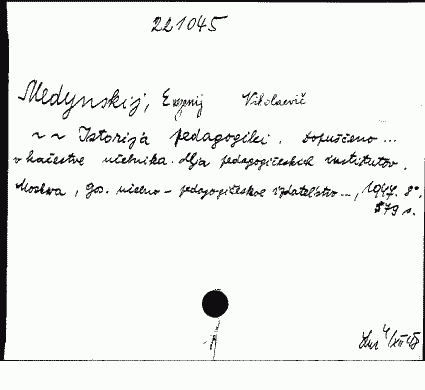 221045
Medynskij, Evgenij Nikolaevič
~ ~ Istorija pedagogiki. Dopuščeno ...
v kačestve učebnika dlja pedagogičeskich institutov.
Moskva, Gos. učebno-pedagogičeskoe izdatel'stvo ..., 1947. 8°.
579 s.
4/XII 48